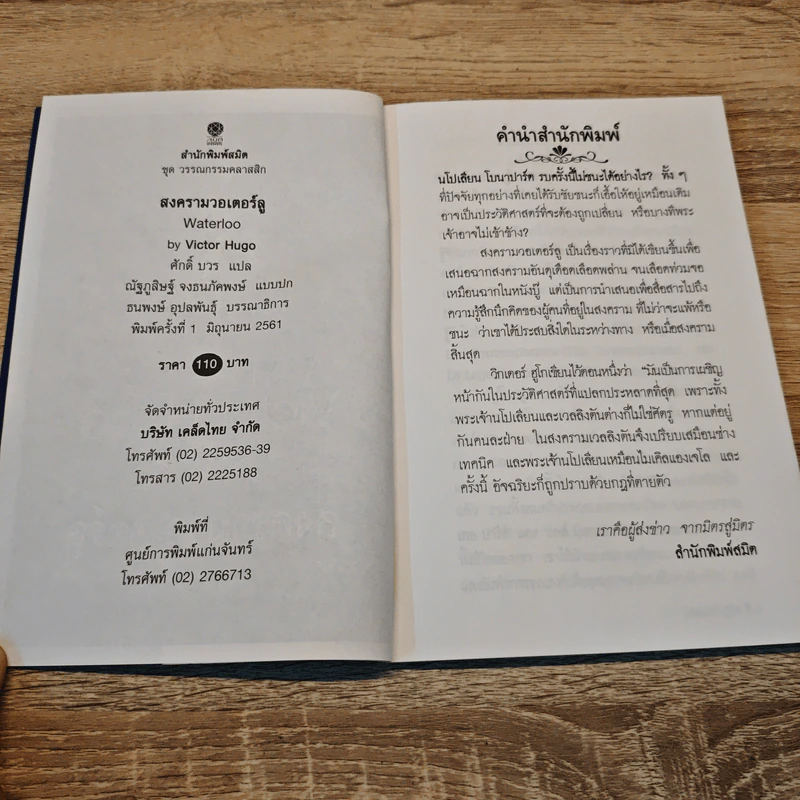 สำนักพิมพ์สมิต
ชุด วรรณกรรมคลาสสิก
สงครามวอเตอร์ลู
Waterloo
by Victor Hugo
ศักดิ์ บวร แปล
ณัฐภูสิษฐ์ จงธนภัคพงษ์ แบบปก
ธนพงษ์ อุปลพันธุ์ บรรณาธิการ
พิมพ์ครั้งที่ 1 มิถุนายน 2561
ราคา 110 บาท
จัดจำหน่ายทั่วประเทศ
บริษัท เคล็ดไทย จำกัด
โทรศัพท์ (02) 2259536-39
โทรสาร (02) 2225188
พิมพ์ที่
ศูนย์การพิมพ์แก่นจันทร์
โทรศัพท์ (02) 2766713
คำนำสำนักพิมพ์
นโปเลียน โบนาปาร์ต รบครั้งนี้ไม่ชนะได้อย่างไร? ทั้ง ๆ
ที่ปัจจัยทุกอย่างที่เคยได้รับชัยชนะก็เอื้อให้อยู่เหมือนเดิม
อาจเป็นประวัติศาสตร์ที่จะต้องถูกเปลี่ยน หรือบางทีพระ
เจ้าอาจไม่เข้าข้าง?
สงครามวอเตอร์ลู เป็นเรื่องราวที่มิได้เขียนขึ้นเพื่อ
เสนอฉากสงครามอันดุเดือดเลือดพล่าน จนเลือดท่วมจอ
เหมือนฉากในหนังบู๊ แต่เป็นการนำเสนอเพื่อสื่อสารไปถึง
ความรู้สึกนึกคิดของผู้คนที่อยู่ในสงคราม ที่ไม่ว่าจะแพ้หรือ
ชนะ ว่าเขาได้ประสบสิ่งใดในระหว่างทาง หรือเมื่อสงคราม
สิ้นสุด
วิกเตอร์ ฮูโกเขียนไว้ตอนหนึ่งว่า “มันเป็นการเผชิญ
หน้ากันในประวัติศาสตร์ที่แปลกประหลาดที่สุด เพราะทั้ง
พระเจ้านโปเลียนและเวลลิงตันต่างก็ไม่ใช่ศัตรู หากแต่อยู่
กันคนละฝ่าย ในสงครามเวลลิงตันจึงเปรียบเสมือนช่าง
เทคนิค และพระเจ้านโปเลียนเหมือนไมเคิลแองเจโล และ
ครั้งนี้ อัจฉริยะก็ถูกปราบด้วยกฎที่ตายตัว
เราคือผู้ส่งข่าว จากมิตรสู่มิตร
สำนักพิมพ์สมิต